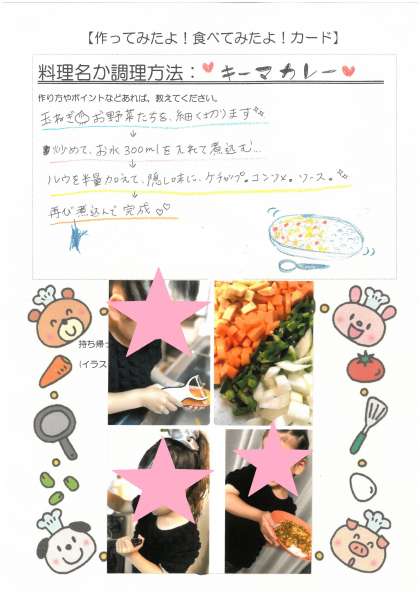 【作ってみたよ！食べてみたよ！カード】
料理名か調理方法：キーマカレー
作り方やポイントなどあれば、教えてください。
玉ねぎ お野菜たちを、細く切ります
↓
炒めて、お水300mlを入れて煮込む…
↓
ルウを半量加えて、隠し味に、ケチャップ。コンソメ。ソース。
↓
再び煮込んで完成
持ち帰っ
(イラス